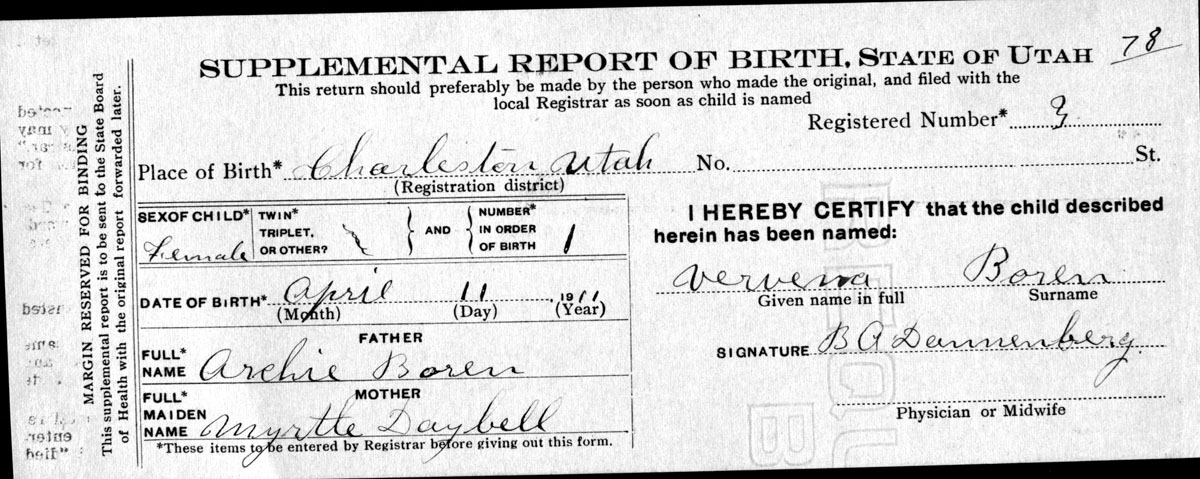 78
SUPPLEMENTAL REPORT OF BIRTH, STATE OF UTAH
This return should preferably be made by the person who made the original, and filed with the
local Registrar as soon as child is named
Registered Number* 3
Place of Birth* Charleston Utah No. St.
(Registration district)
SEX OF CHILD* Female
TWIN*
TRIPLET,
OR OTHER?
AND
NUMBER*
IN ORDER
OF BIRTH 1
DATE OF BIRTH* April 11 1911
(Month) (Day) (Year)
FATHER
FULL*
NAME Archie Boren
MOTHER
FULL*
MAIDEN
NAME Myrtle Daybell
*These items to be entered by Registrar before giving out this form.
I HEREBY CERTIFY that the child described
herein has been named:
Vervena Boren
Given name in full Surname
SIGNATURE B A Dannenberg
Physician or Midwife
MARGIN RESERVED FOR BINDING
This supplemental report is to be sent to the State Board
of Health with the original report forwarded later.